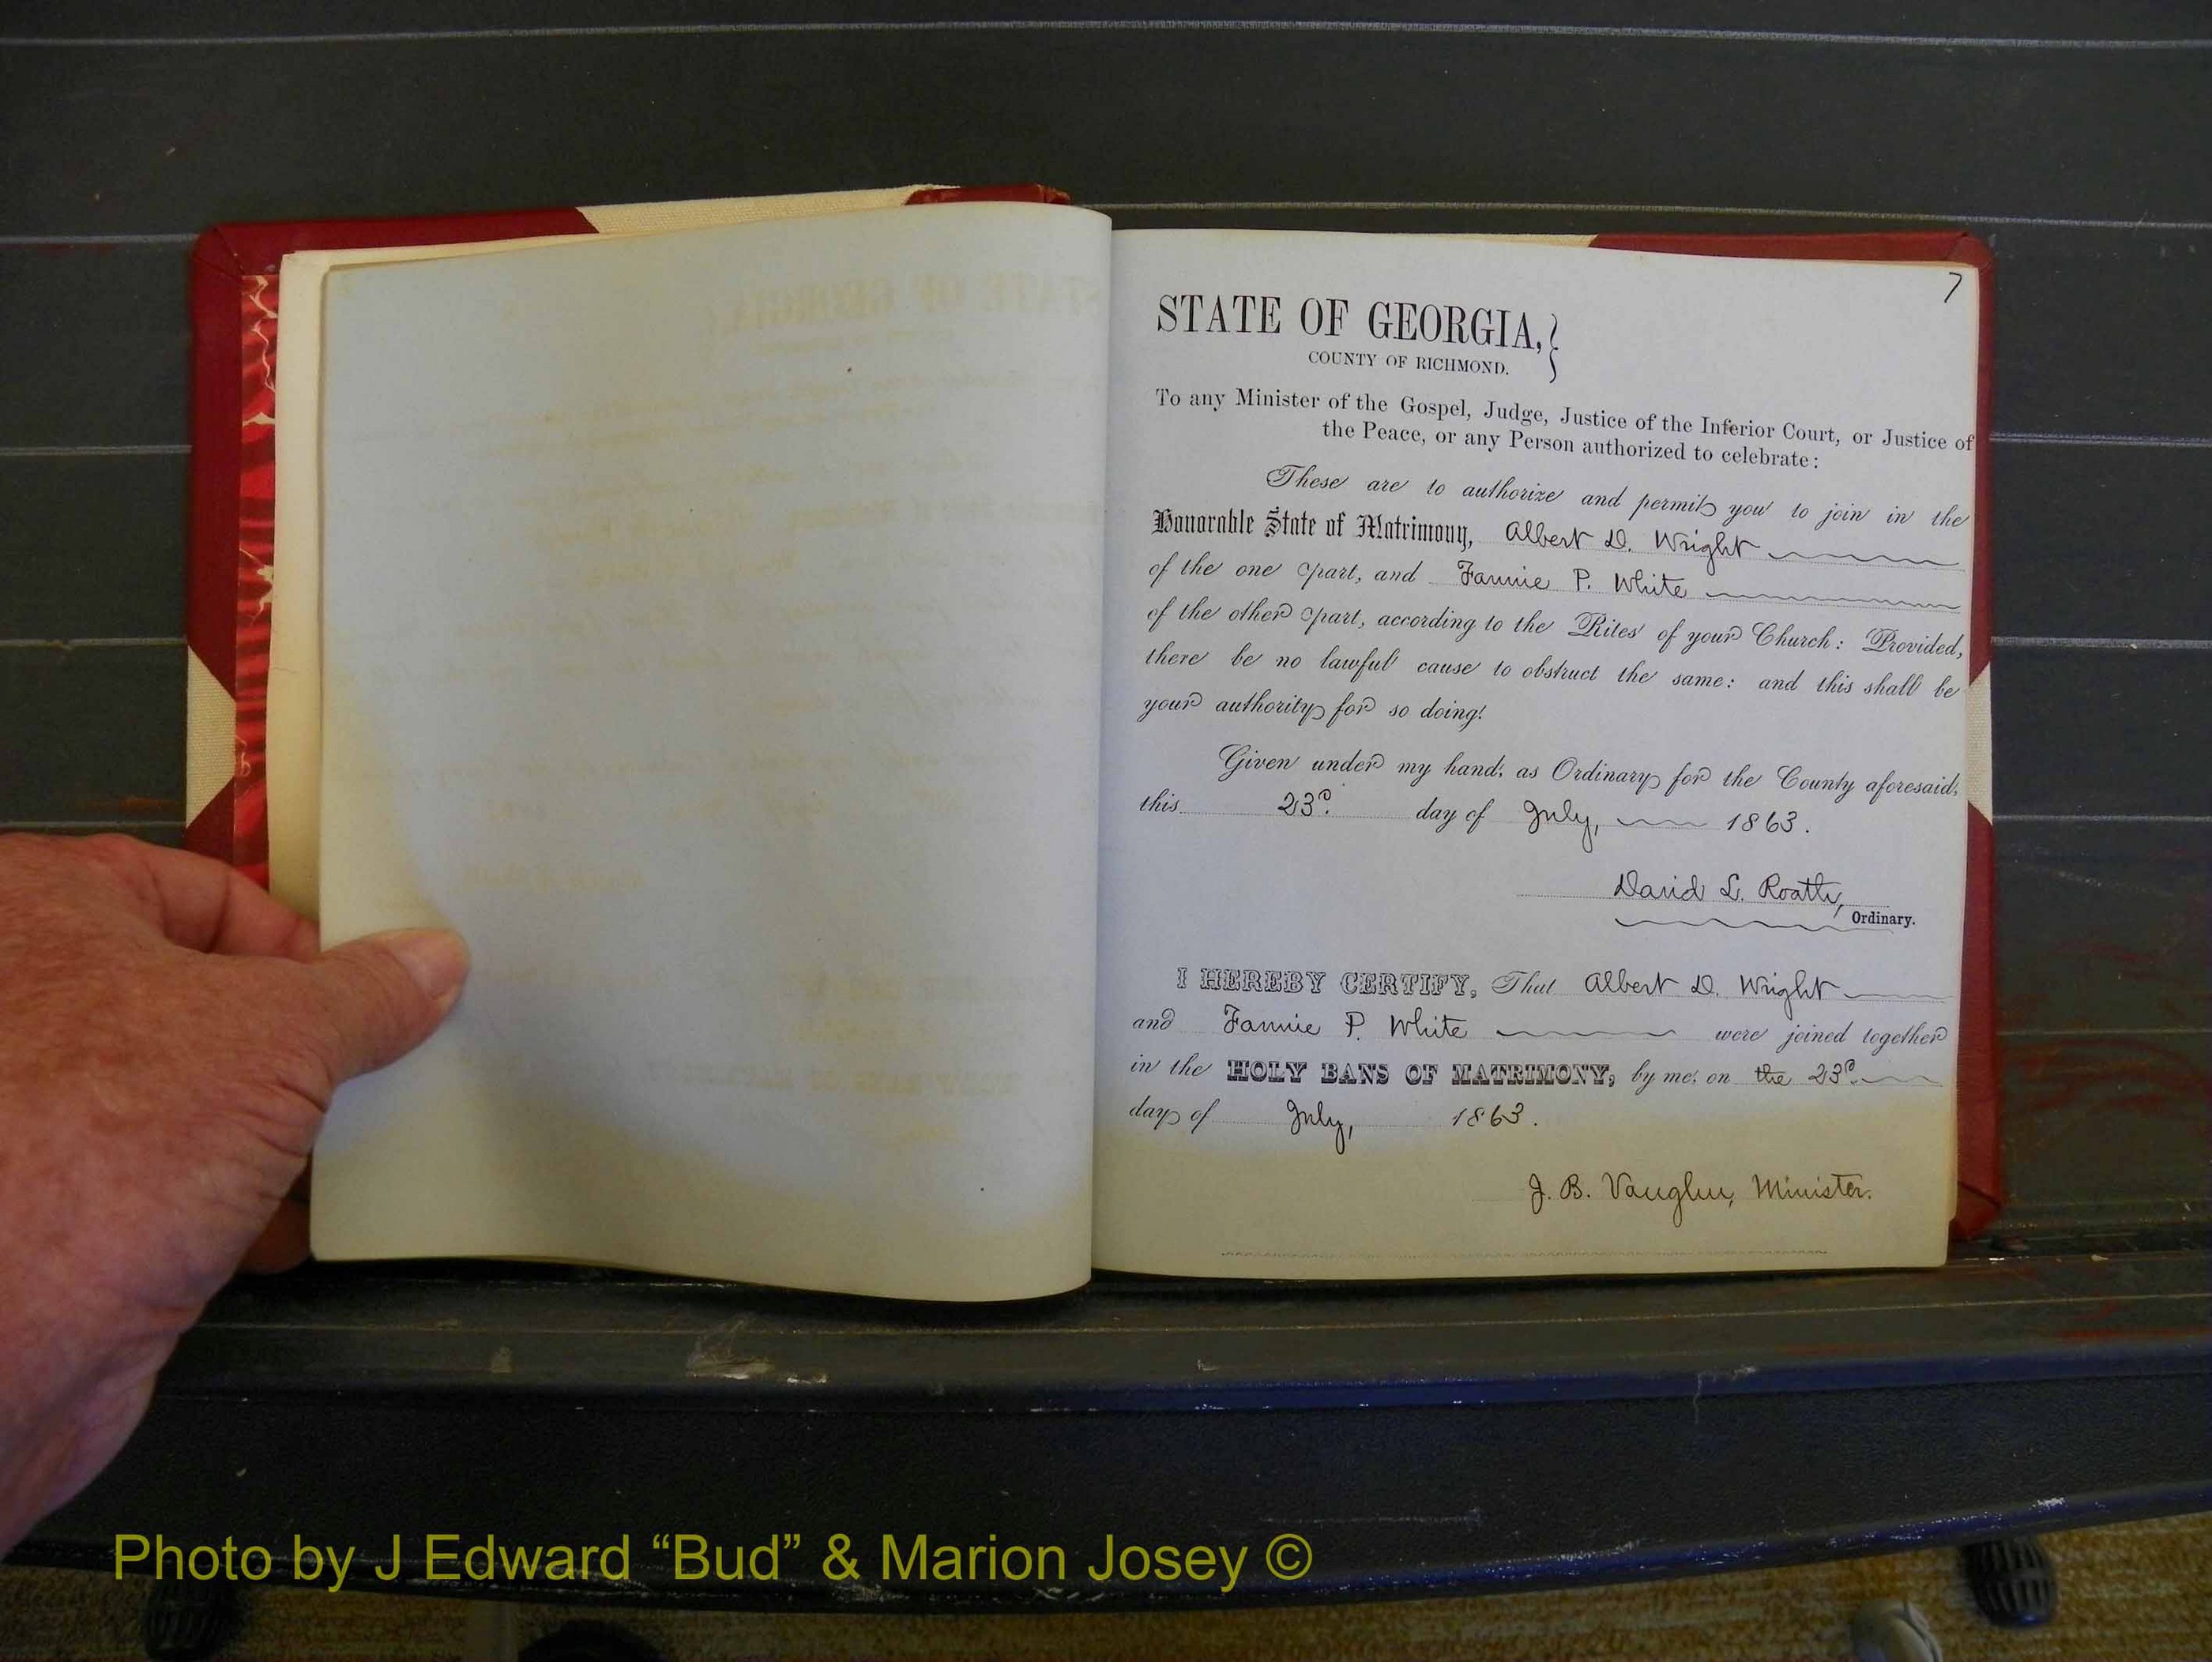 7
STATE OF GEORGIA,
COUNTY OF RICHMOND.
To any Minister of the Gospel, Judge, Justice of the Inferior Court, or Justice of
the Peace, or any Person authorized to celebrate:
These are to authorize and permit you to join in the
Honorable State of Matrimony, Albert D. Wright
of the one part, and Fannie P. White
of the other part, according to the Rites of your Church: Provided,
there be no lawful cause to obstruct the same: and this shall be
your authority for so doing!
Given under my hand, as Ordinary for the County aforesaid,
this 23d. day of July, 1863.
David L. Roath,
Ordinary.
I HEREBY CERTIFY, That Albert D. Wright
and Fannie P. White were joined together
in the HOLY BANS OF MATRIMONY, by me, on the 23d.
day of July, 1863.
J. B. Vaughn, Minister.
Photo by J Edward “Bud” & Marion Josey ©